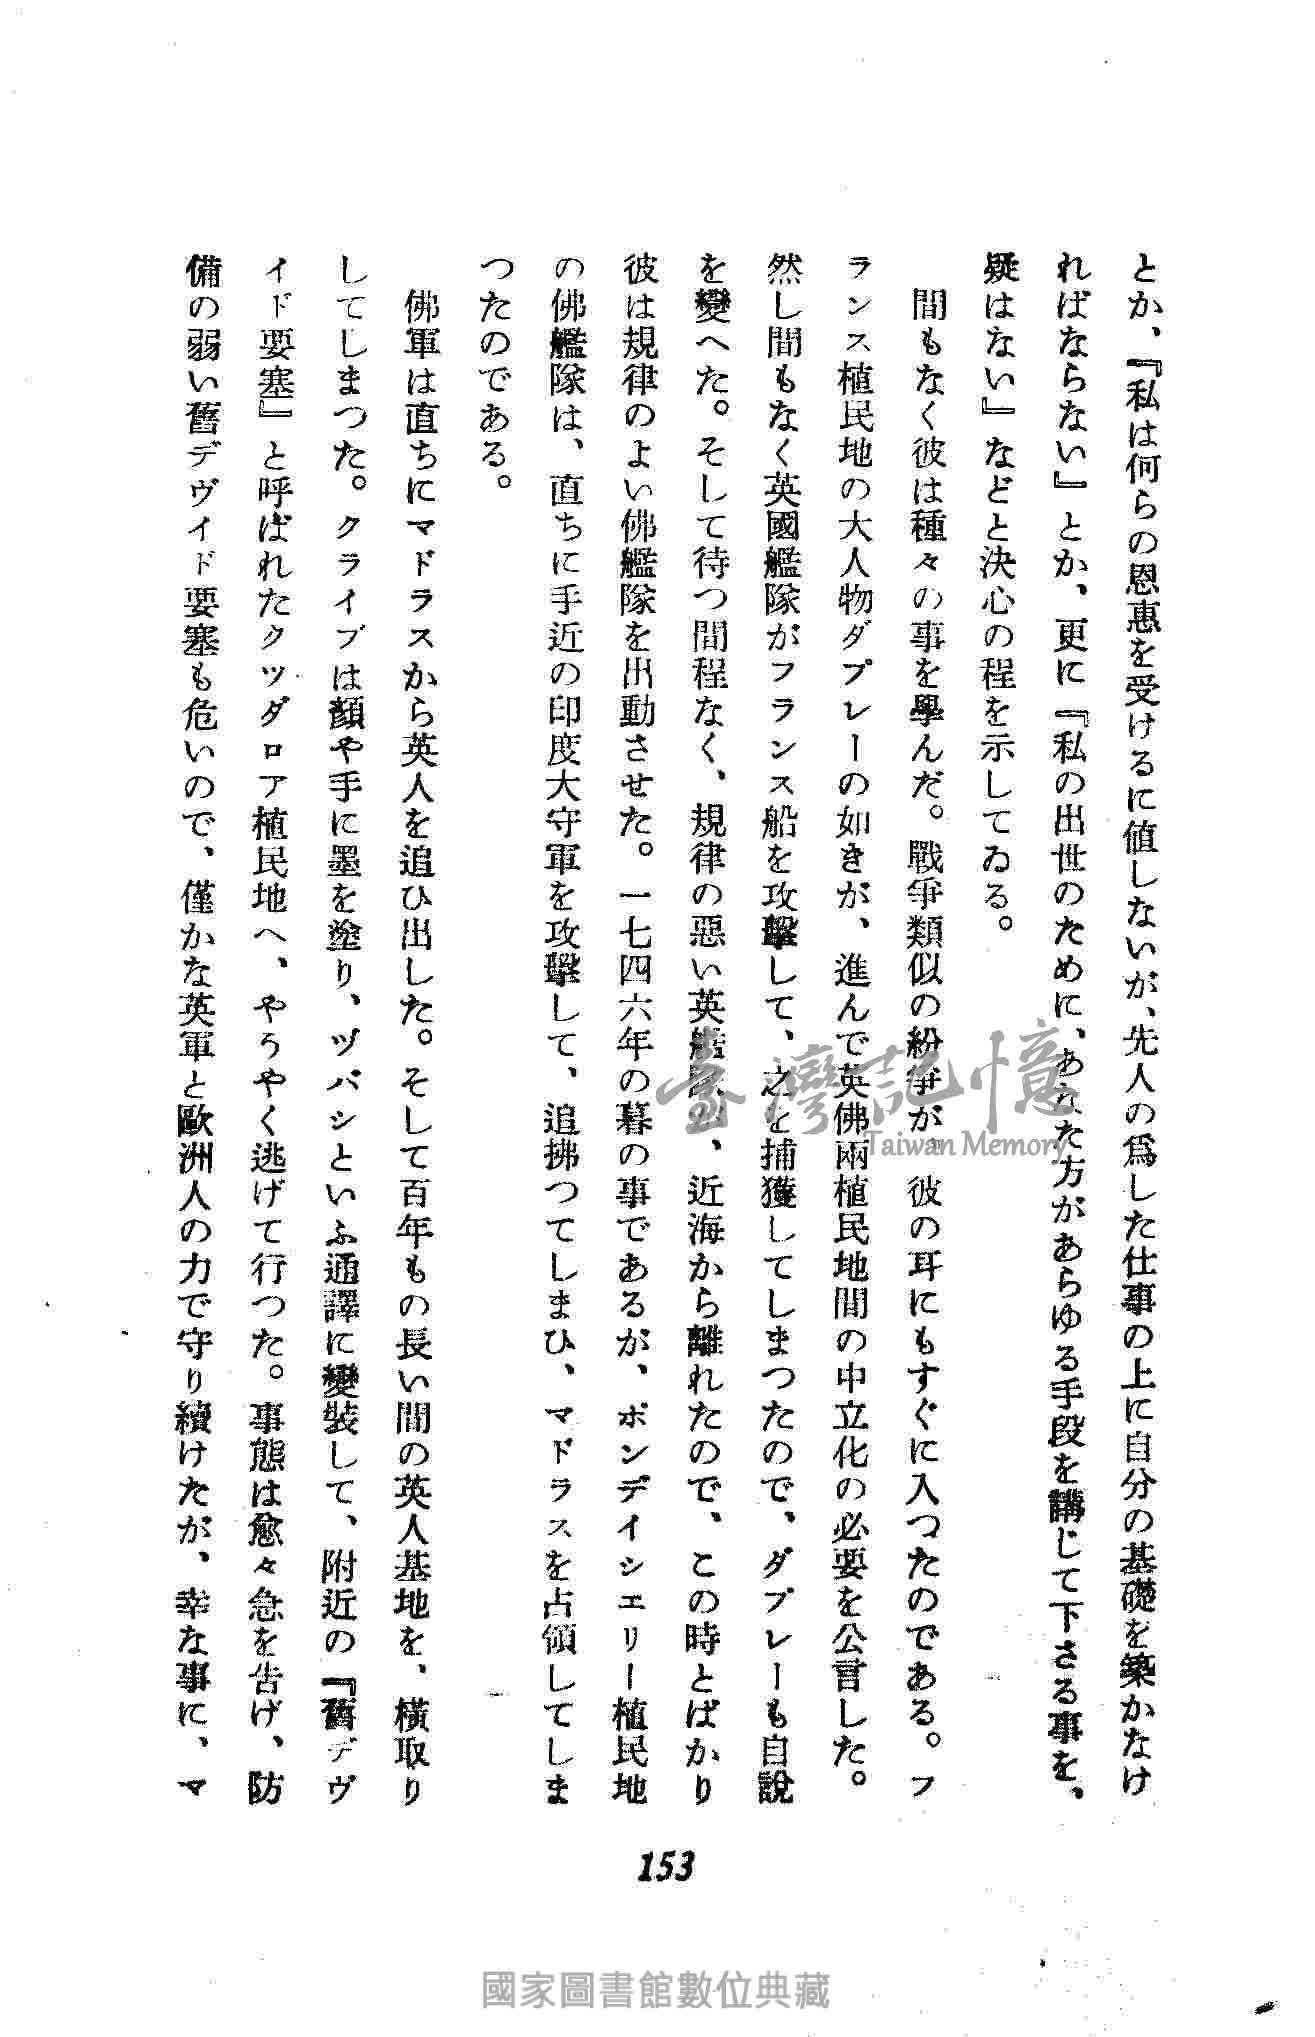 とか、『私は何らの恩惠を受けるに値しないが、先人の爲した仕事の上に自分の基礎を築かなけ
ればならない』とか、更に『私の出世のために、あなた方があらゆる手段を講じて下さる事を、
疑はない』などと決心の程を示してゐる。
間もなく彼は種々の事を學んだ。戰爭類似の紛爭が、彼の耳にもすぐに入つたのである。フ
ランス植民地の大人物ダプレーの如きが、進んで英佛兩植民地間の中立化の必要を公言した。
然し間もなく英國艦隊がフランス船を攻擊して、之を捕獲してしまつたので、ダプレーも自說
を變へた。そして待つ間程なく、規律の惡い英艦隊が、近海から離れたので、この時とばかり
彼は規律のよい佛艦隊を出動させた。一七四六年の暮の事であるが、ポンデイシエリー植民地
の佛艦隊は、直ちに手近の印度大守軍を攻擊して、追拂つてしまひ、マドラスを占領してしま
つたのである。
佛軍は直ちにマドラスから英人を追ひ出した。そして百年もの長い間の英人基地を、橫取り
してしまつた。クライブは顏や手に墨を塗り、ヅバシといふ通譯に變裝して、附近の『舊デヴ
イド要塞』と呼ばれたクツダロア植民地へ、やうやく逃げて行つた。事態は愈々急を告げ、防
備の弱い舊デヴイド要塞も危いので、僅かな英軍と歐洲人の力で守り續けたが、幸な事に、マ
153
臺灣記憶
Taiwan Memory
國家圖書館數位典藏